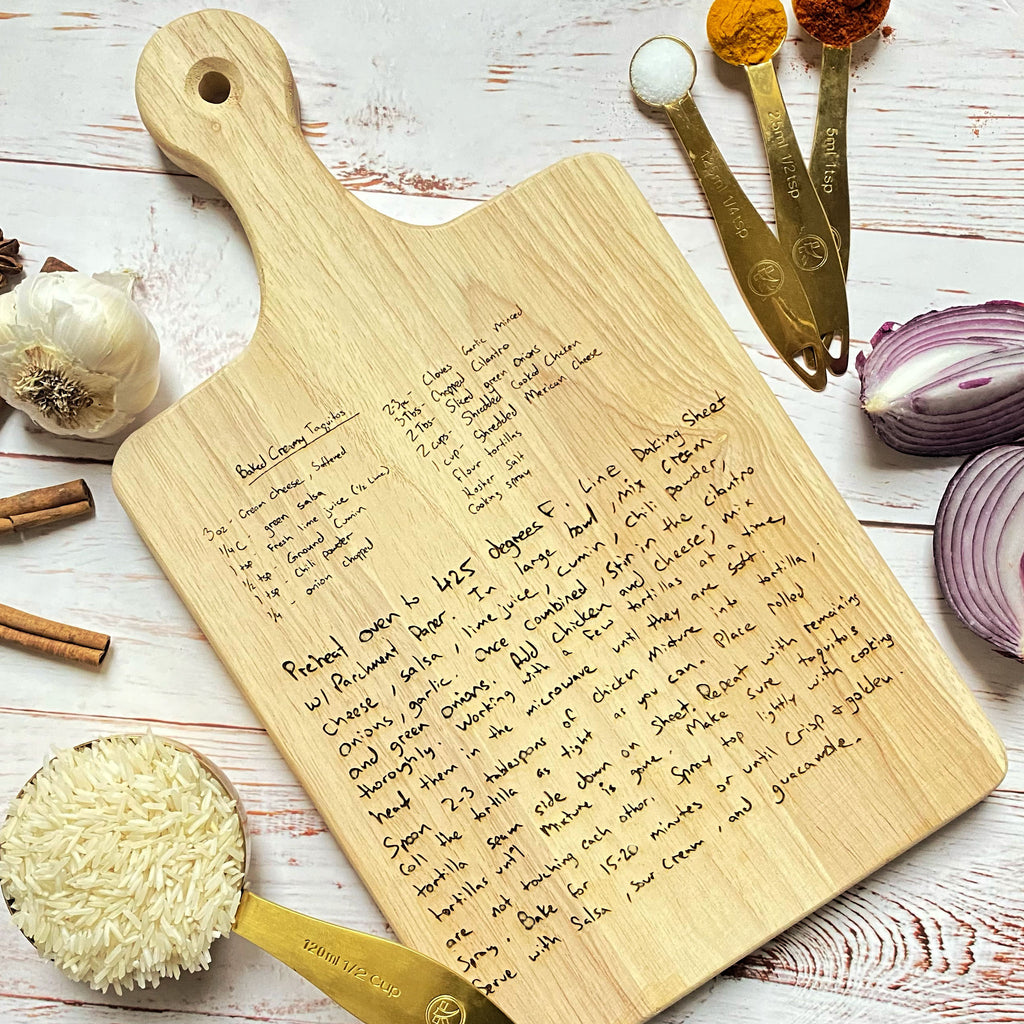 Baked Creamy Taquitos
3 oz - Cream cheese, softened
1/4 C - green salsa
1 tsp - Fresh lime juice (1/2 Lime)
1/2 tsp - Ground Cumin
1 tsp - Chili powder
1/4 - onion chopped
2-3 - Cloves Garlic Minced
3 Tbs - Chopped Cilantro
2 Tbs - Sliced green onions
2 cups - Shredded Cooked Chicken
1 cup - Shredded Mexican Cheese
flour tortillas
Kosher Salt
Cooking spray
Preheat oven to 425 degrees F. Line Baking Sheet
w/ Parchment Paper. In large bowl, mix Cream
Cheese, salsa, lime juice, cumin, chili powder,
onions, garlic. Once combined, Stir in the cilantro
and green onions. Add chicken and cheese, mix
thoroughly. Working with a few tortillas at a time,
heat them in the microwave until they are soft.
Spoon 2-3 tablespons of chickn mixture into tortilla,
roll the tortilla as tight as you can. Place rolled
tortilla seam side down on sheet. Repeat with remaining
tortillas until Mixture is gone. Make sure taquitos
are not touching each other. Spray top lightly with cooking
Spray. Bake for 15-20 minutes or until Crisp & golden.
Serve with Salsa, sour cream, and guacamole.
1.25ml 1/4tsp
2.5ml 1/2tsp
5ml 1tsp
120ml 1/2 Cup